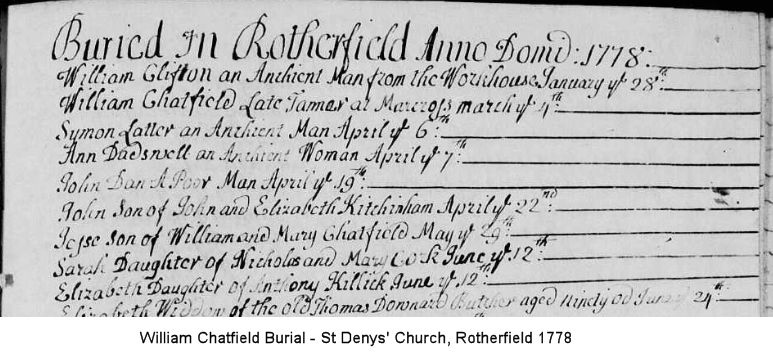 Buried In Rotherfield Anno Domd: 1778:
William Clifton an Anchient Man from the Workhouse January ye 28th:
William Chatfield Late Tamer at Marcross march ye 4th:
Symon Latter an Anchient Man April ye 6th:
Ann Dadswell an Anchient Woman April ye 7th:
John Dan A Poor Man April ye 19th:
John Son of John and Elizabeth Kitchinham April ye 22nd
Jesse Son of William and Mary Chatfield May ye 29th:
Sarah Daughter of Nicholis and Mary Cork June ye 12th:
Elizabeth Daughter of Anthony Killick June ye 12th:
Elizabeth Widdow of the old Thomas Downard Butcher aged Ninety od June ye 24th
William Chatfield Burial - St Denys' Church, Rotherfield 1778